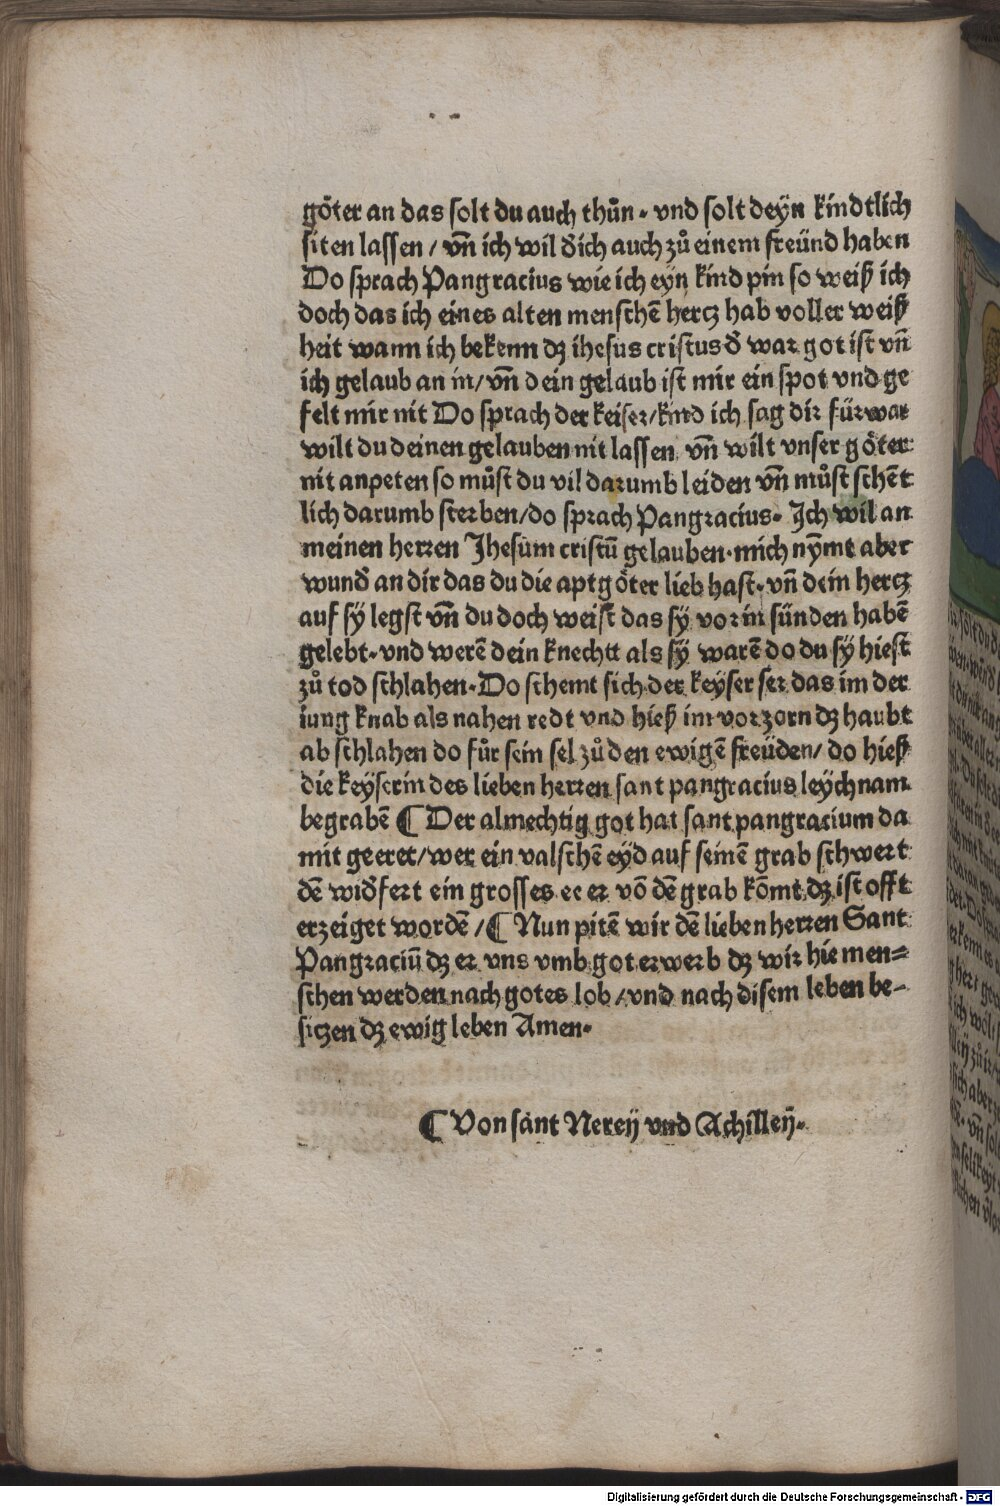 göter an das solt du auch thůn· vnd solt deÿn kindtlich
siten lassen / vn̄ ich wil dich auch zů einem freünd haben
Do sprach Pangracius wie ich eÿn kind pin so weiß ich
doch das ich eines alten menschē hercz hab voller weiß
heit wann ich bekenn dʒ ihesus cristus đ war got ist vn̄
ich gelaub an in/ vn̄ dein gelaub ist mir ein spot vnd ge
felt mir nit Do sprach der keiser/ kind ich sag dir fürwar
wilt du deinen gelauben nit lassen vn̄ wilt vnser göter
nit anpeten so můst du vil darumb leiden vn̄ můst schēt
lich darumb sterben/ do sprach Pangracius· Ich wil an
meinen herren Jhesum cristū gelauben· mich nȳmt aber
wunđ an dir das du die aptgöter lieb hast· vn̄ dein hercz
auf sÿ legst vn̄ du doch weist das sÿ vor in sünden habē
gelebt· vnd werē dein knecht als sÿ warē do du sÿ hiest
zů tod schlahen· Do schemt sich der keÿser ser das im der
iung knab als nahen redt vnd hieß im vor zorn dʒ haubt
ab schlahen do fůr sein sel zů den ewigē freüden/ do hieß
die keÿserin des lieben herren sant pangracius leÿchnam
begrabē ¶ Der almechtig got hat sant pangracium da
mit geeret/ wer ein valschē eÿd auf seinē grab schwert
dē widfert ein grosses ee er vō dē grab kōmt dʒ ist offt
erzeiget wordē / ¶ Nun pitē wir dē lieben herren Sant
Pangraciū dʒ er vns vmb got erwerb dʒ wir hie men=
schen werden nach gotes lob / vnd nach disem leben be-
siczen dʒ ewig leben Amen·
¶ Von sant Nereÿ vnd Achilleÿ·
Digitalisierung gefördert durch die Deutsche Forschungsgemeinschaft - DFG